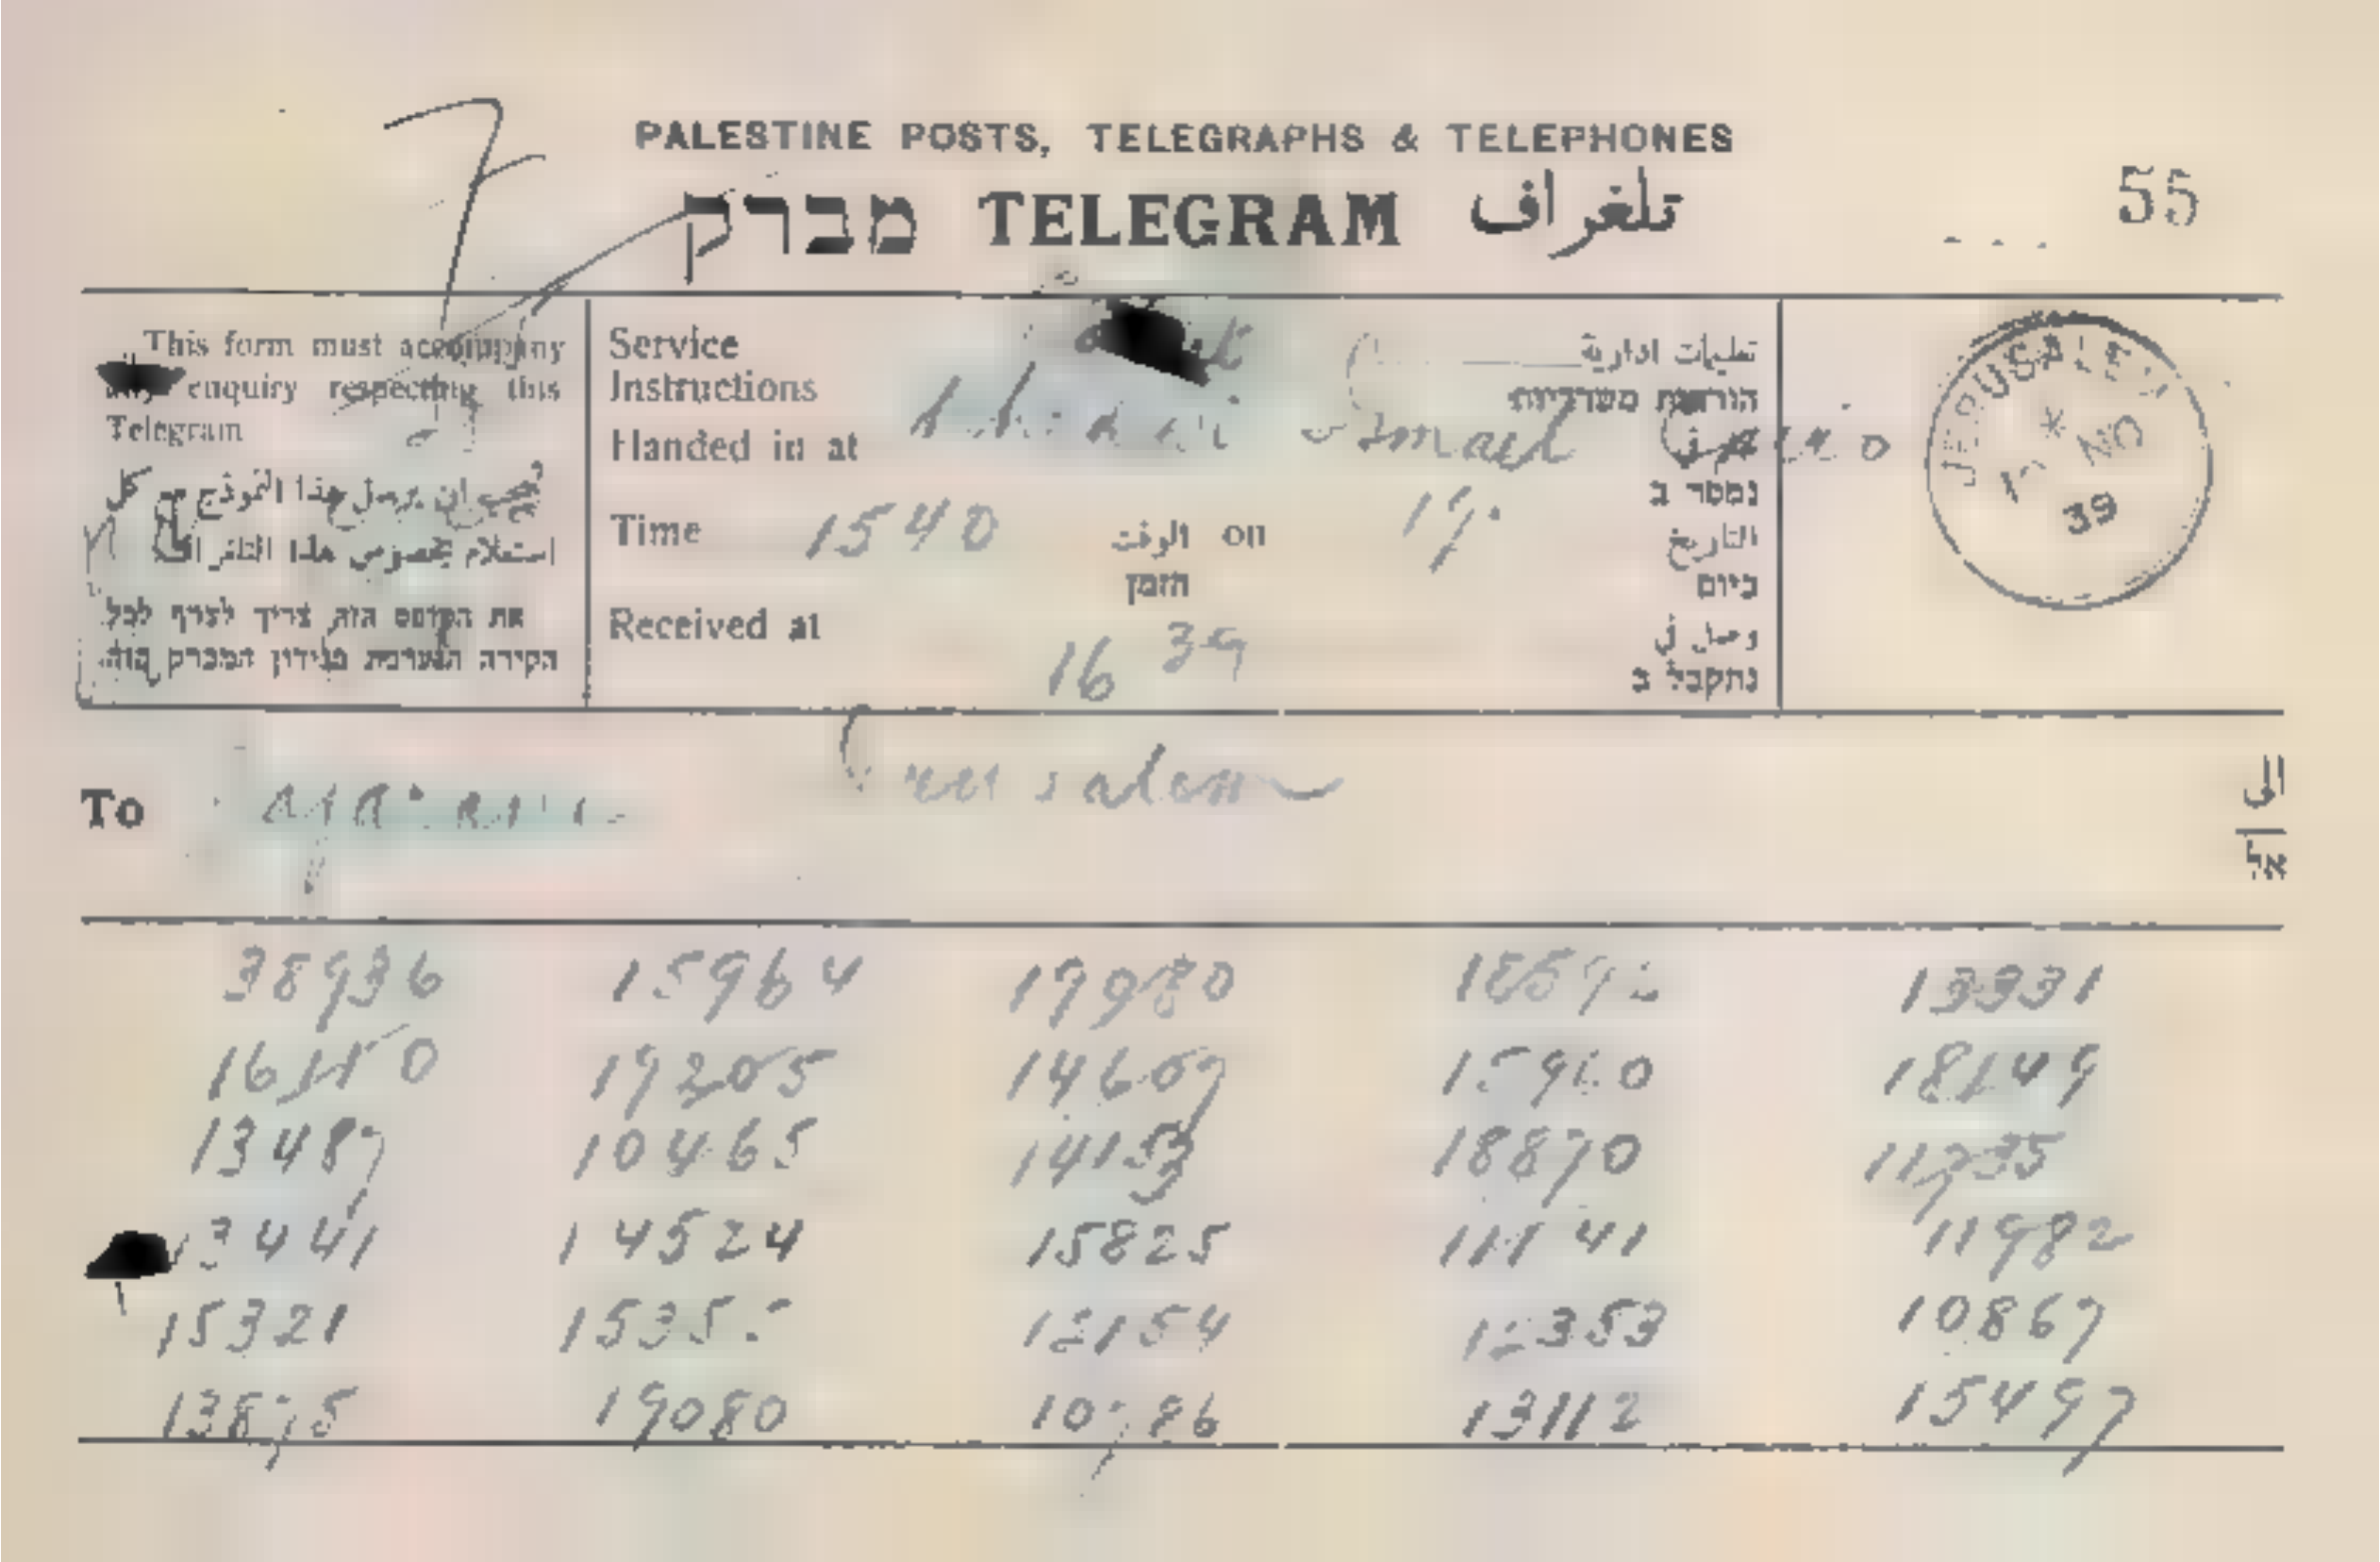 PALESTINE POSTS, TELEGRAPHS & TELEPHONES
מברק TELEGRAM تلغراف
55
This form must accompany
any enquiry respecting this
Telegram
يجب ان يرسل هذا النموذج مع كل
استعلام بخصوص هذا التلغراف
את הטופס הזה צריך לצרף לכל
חקירה הנערכת בנידון המברק הזה.
Service
Instructions
تعليمات ادارية
הוראות משרדיות
Handed in at Ismail Cairo
נמסר ב
Time 1540 الوقت on 17.
הזמן
التاريخ
ביום
Received at 16 39
وصل في
נתקבל ב
JERUSALEM
NO
39
To Jerusalem
الى
אל
38936 15964 17980 13331
19205 14607 18149
13487 10465 14153 18870 11735
13441 14524 15825 11141 11982
15321 12154 12353 10867
13875 19080 10786 13112 15497